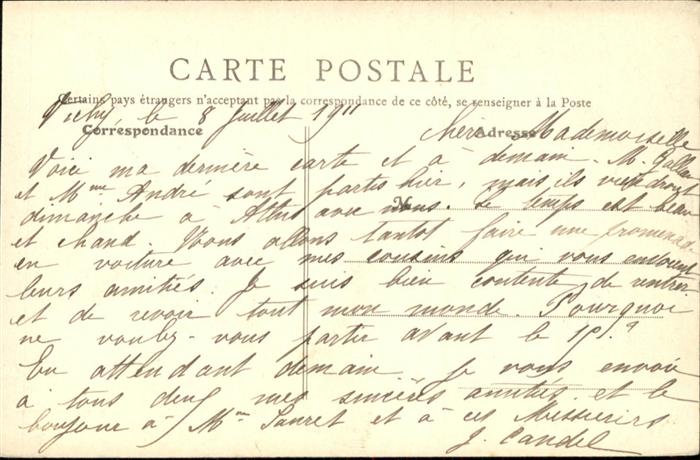 CARTE POSTALE
Certains pays étrangers n'acceptant pas la correspondance de ce côté, se renseigner à la Poste
Vichy, le 8 Juillet 1911
Correspondance
Adresse
Chère Mademoiselle
Voici ma dernière carte et à demain. M.
et Mme André sont partis hier, mais ils viendront
dimanche à avec nous. Le temps est beau
et chaud. Nous allons tantôt faire une promenade
en voiture avec mes cousins qui vous envoient
leurs amitiés. Je suis bien contente de rentrer
et de revoir tout mon monde. Pourquoi
ne voulez-vous partir avant le 15?
En attendant demain je vous envoie
à tous deux mes sincères amitiés et le
bonjour à Mme et à ces Messieurs
J. Candel